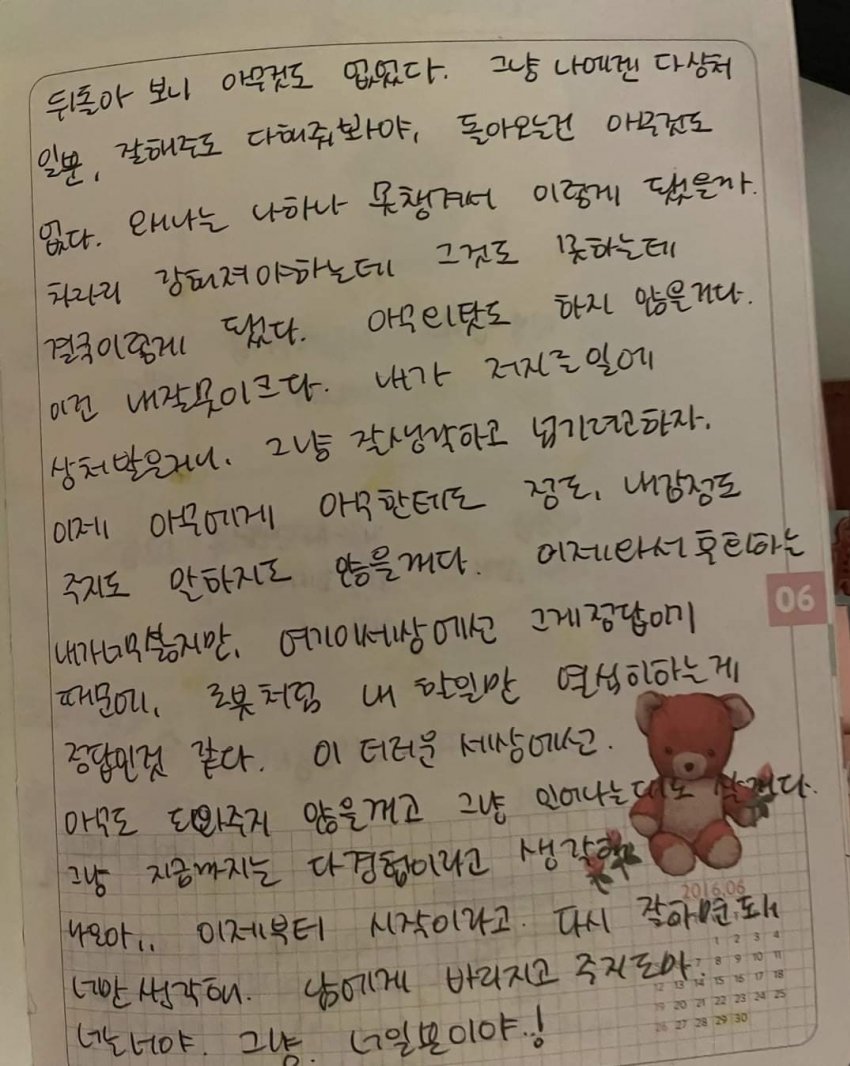 뒤돌아 보니 아무것도 없었다. 그냥 나에겐 다상처
일뿐, 잘해주도 다해줘봐야, 돌아오는건 아무것도
없다. 왜나는 나하나 못챙겨서 이렇게 됐을까.
차라리 강해져야하는데 그것도 못하는데
결국이렇게 됐다. 아무의탓도 하지 않을거다.
이건 내잘못이크다. 내가 저지른일에
상처받은거니. 그냥 잘생각하고 넘기려고하자.
이제 아무에게 아무한테도 정도, 내감정도
주지도 말하지도 않을꺼다. 이제와서후회하는
내가너무싫지만, 여기이세상에선 그게정답이기
때문에, 로봇처럼 내 할일만 열심히하는게
정답인것 같다. 이 더러운 세상에선.
아무도 도와주지 않을꺼고 그냥
그냥 지금까지는 다경험이라고 생각해
나오아,, 이제부터 시작이라고. 다시 잘하면돼
너만생각해. 남에게 바라지고 주지도마.
너는너야. 그냥. 너일뿐이야..!
06
2016.06
1 2 3 4
7 8 9 10 11
12 13 14 15 16 17 18
19 20 21 22 23 24 25
26 27 28 29 30